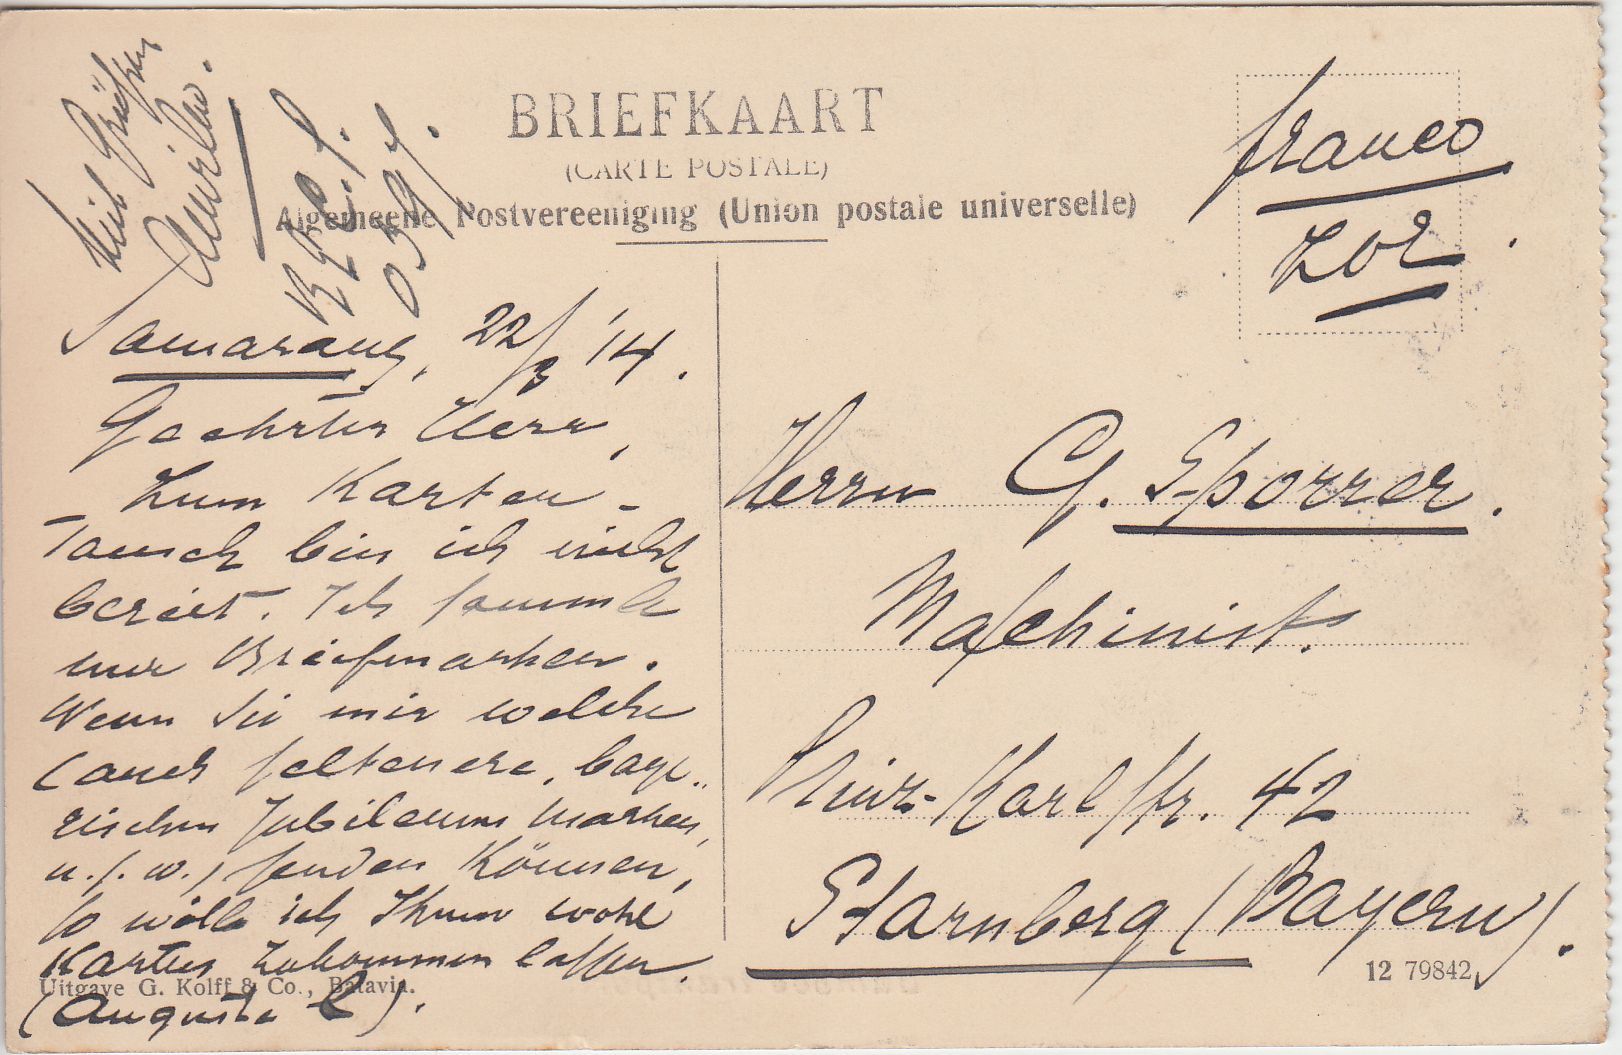 BRIEFKAART
(CARTE POSTALE)
Algemeene Postvereeniging (Union postale universelle)
franco
Samarang, 22/3 '14.
Geehrter Herr,
Zum Karten-
Tausch bin ich nicht
bereit. Ich sammle
nur Briefmarken.
Wenn Sie mir welche
(auch seltenere, baye-
rischen Jubileums Marken,
u.s.w., senden können,
so wolle ich Ihnen wohl
Karten zukommen lassen.
(Auguste
Mit Grüßen
Herrn G. Sporrer.
Maschinist.
Prinz-Karlstr. 42
Starnberg (Bayern).
Uitgave G. Kolff & Co., Batavia.
12 79842